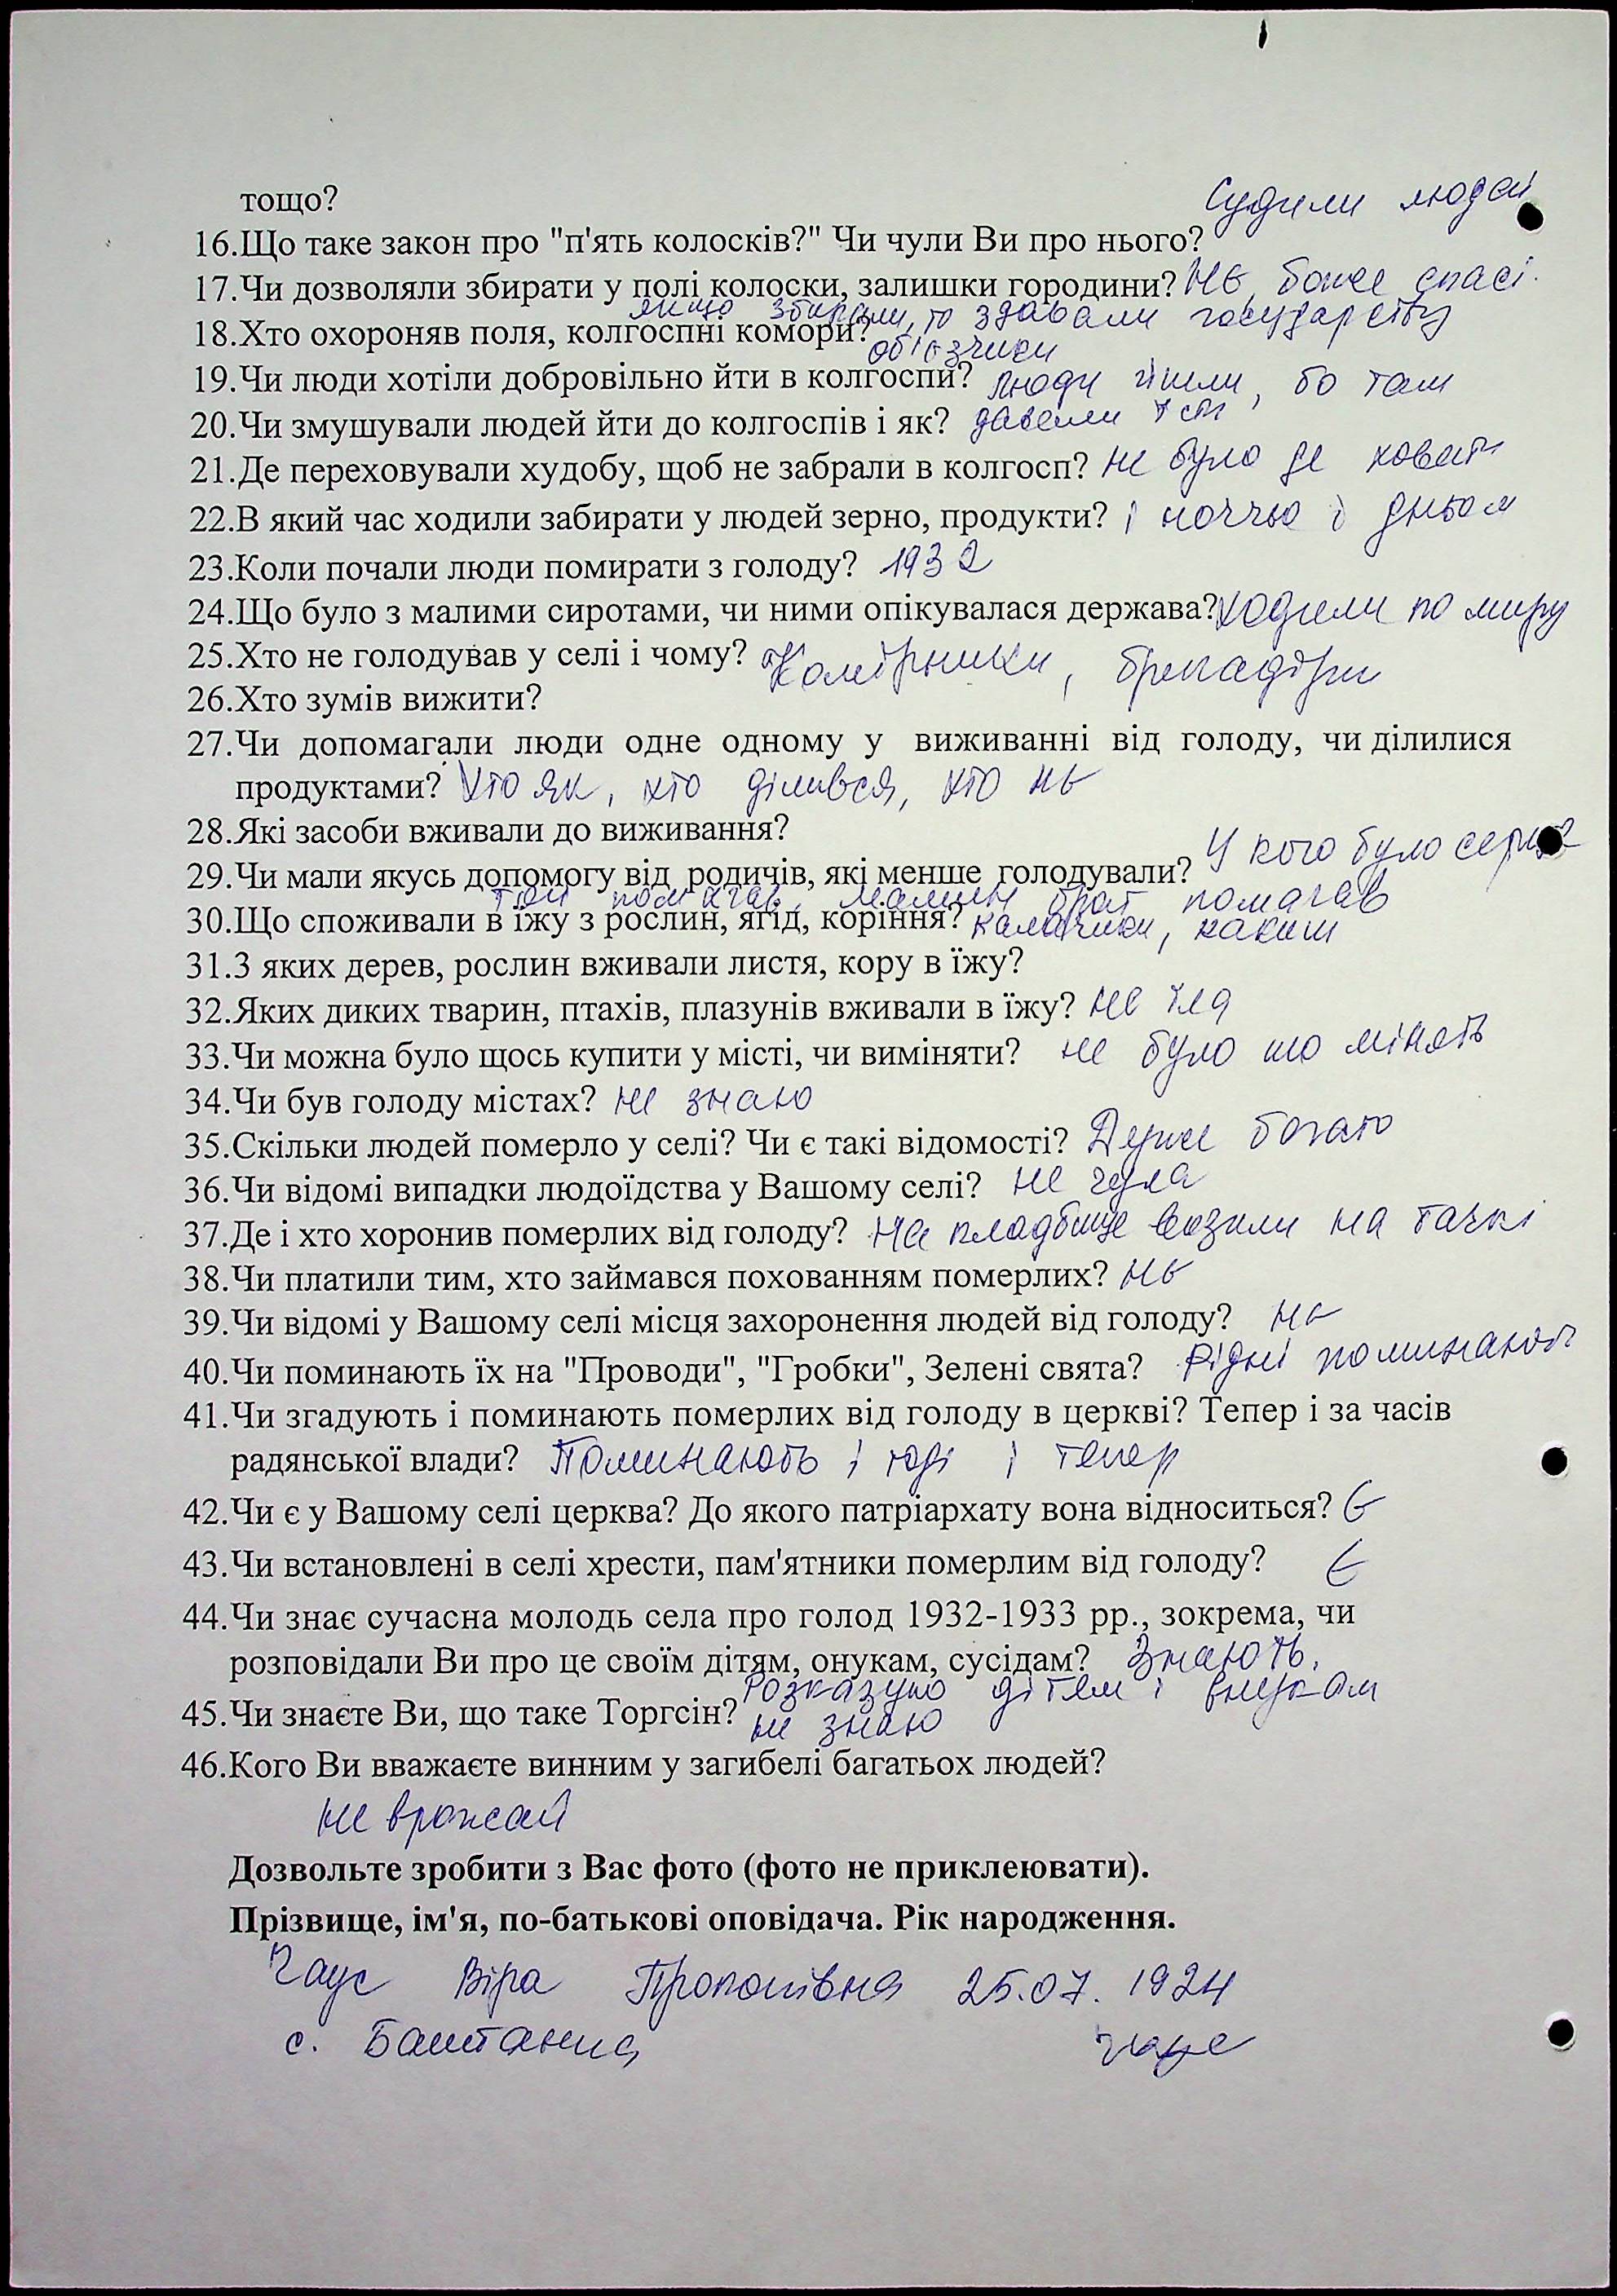 тощо?
Судили людей
16.Що таке закон про "п'ять колосків?" Чи чули Ви про нього?
17.Чи дозволяли збирати у полі колоски, залишки городини? Нє, боже спасі.
якщо збирали, то здавали государству
18.Хто охороняв поля, колгоспні комори? обїєзчики
19.Чи люди хотіли добровільно йти в колгоспи? люди йшли, бо там
20.Чи змушували людей йти до колгоспів і як? давали їсти
21.Де переховували худобу, щоб не забрали в колгосп? не було де ховати
22.В який час ходили забирати у людей зерно, продукти? і ноччю і дньом
23.Коли почали люди помирати з голоду? 1932
24.Що було з малими сиротами, чи ними опікувалася держава? Ходили по миру
25.Хто не голодував у селі і чому? Комірники, бригадіри
26.Хто зумів вижити?
27.Чи допомагали люди одне одному у виживанні від голоду, чи ділилися
продуктами? Хто як, хто ділився, хто нє
28.Які засоби вживали до виживання?
29.Чи мали якусь допомогу від родичів, які менше голодували? У кого було серце
той помагав, мамин брат помагав
30.Що споживали в їжу з рослин, ягід, коріння? калачики, какиш
31.З яких дерев, рослин вживали листя, кору в їжу?
32.Яких диких тварин, птахів, плазунів вживали в їжу? не їла
33.Чи можна було щось купити у місті, чи виміняти? не було шо мінять
34.Чи був голоду містах? не знаю
35.Скільки людей померло у селі? Чи є такі відомості? Дуже богато
36.Чи відомі випадки людоїдства у Вашому селі? не чула
37.Де і хто хоронив померлих від голоду? На кладбище возили на тачкі
38.Чи платили тим, хто займався похованням померлих? нє
39.Чи відомі у Вашому селі місця захоронення людей від голоду? нє
40.Чи поминають їх на "Проводи", "Гробки", Зелені свята? Рідні поминають
41.Чи згадують і поминають померлих від голоду в церкві? Тепер і за часів
радянської влади? Поминають і тоді і тепер
42.Чи є у Вашому селі церква? До якого патріархату вона відноситься? Є
43.Чи встановлені в селі хрести, пам'ятники померлим від голоду? Є
44.Чи знає сучасна молодь села про голод 1932-1933 рр., зокрема, чи
розповідали Ви про це своїм дітям, онукам, сусідам? Знають,
Розказую дітям і внукам
45.Чи знаєте Ви, що таке Торгсін? не знаю
46.Кого Ви вважаєте винним у загибелі багатьох людей?
не врожай
Дозвольте зробити з Вас фото (фото не приклеювати).
Прізвище, ім'я, по-батькові оповідача. Рік народження.
Чаус Віра Прокопівна 25.07.1924
с. Баштанка Чаус